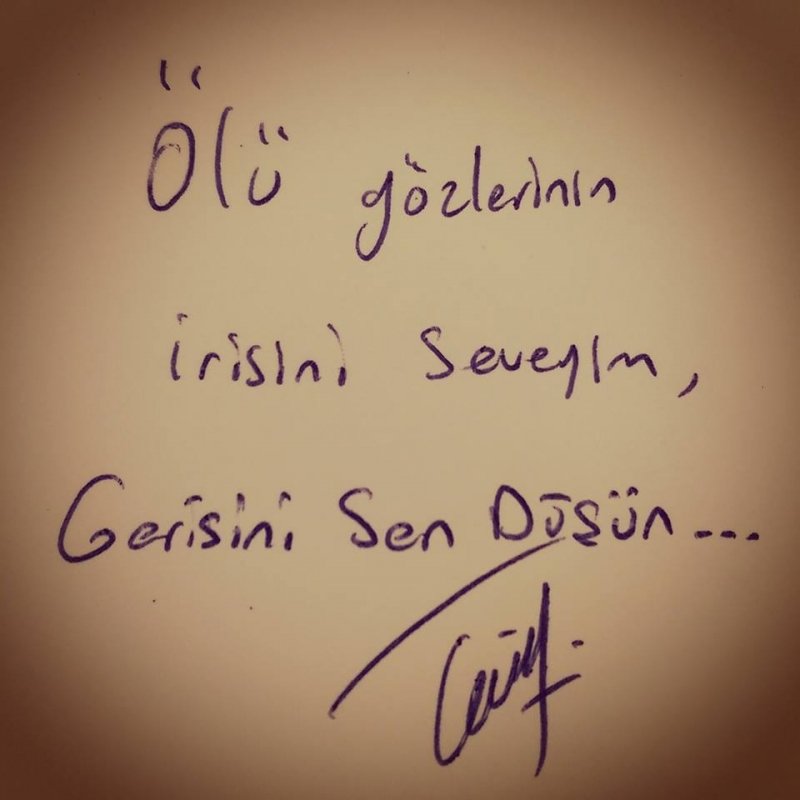 Ölü gözlerinin
irisini Seveyim,
Gerisini Sen Düşün...